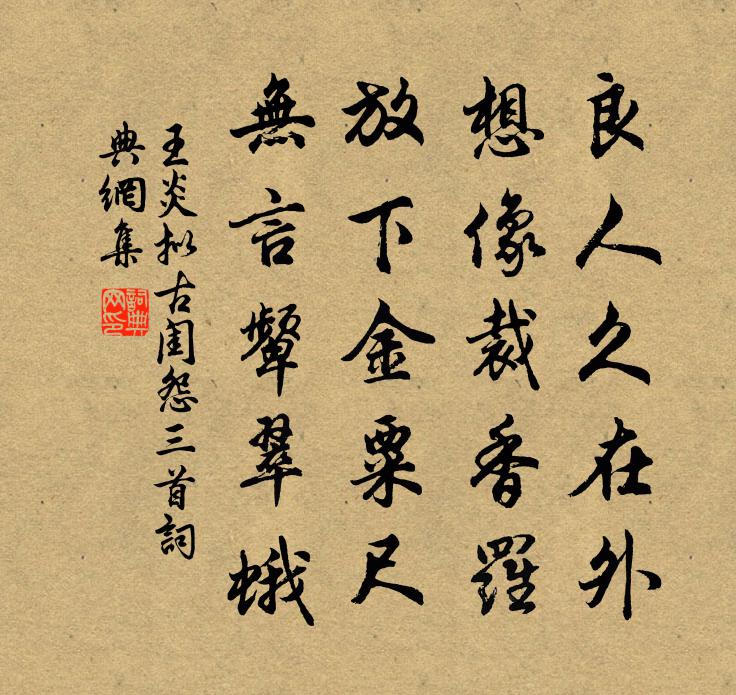 良人久在外
想像裁香羅
放下金粟尺
無言顰翠蛾
王炎拟古閨怨三首詞
典網集
詞典
网印